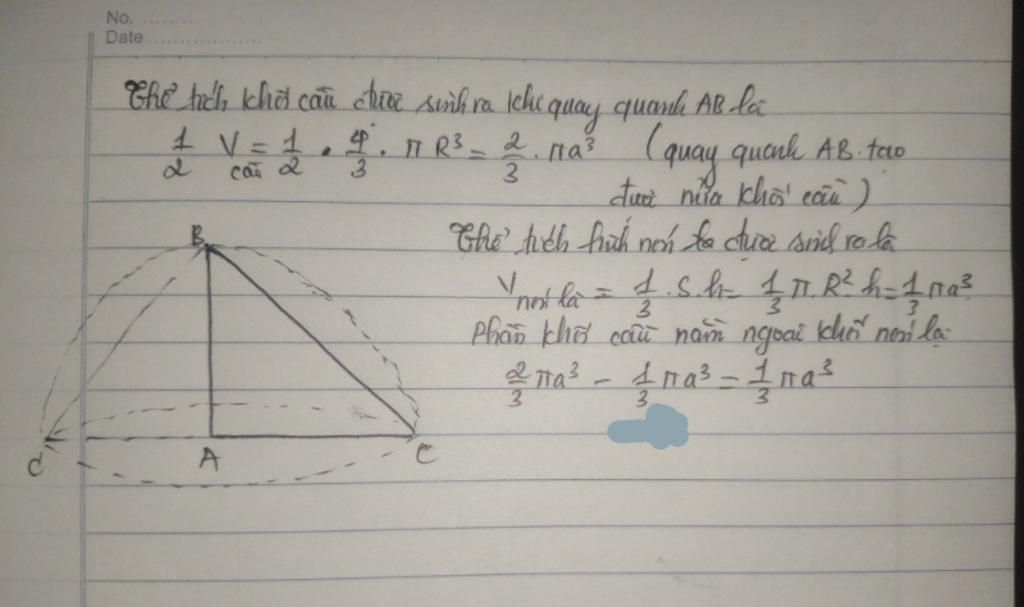 No. ........
Date ..................
Thể tích khối cầu được sinh ra khi quay quanh AB là
1/2 V cầu = 1/2 . 4/3 . π R³ = 2/3 . πa³ (quay quanh AB tạo
được nửa khối cầu)
Thể tích hình nón ta được sinh ra là
V nón là = 1/3 . S.h = 1/3 π.R².h = 1/3 πa³
Phần khối cầu nằm ngoài khối nón là
2/3 πa³ - 1/3 πa³ = 1/3 πa³
B
C' A C